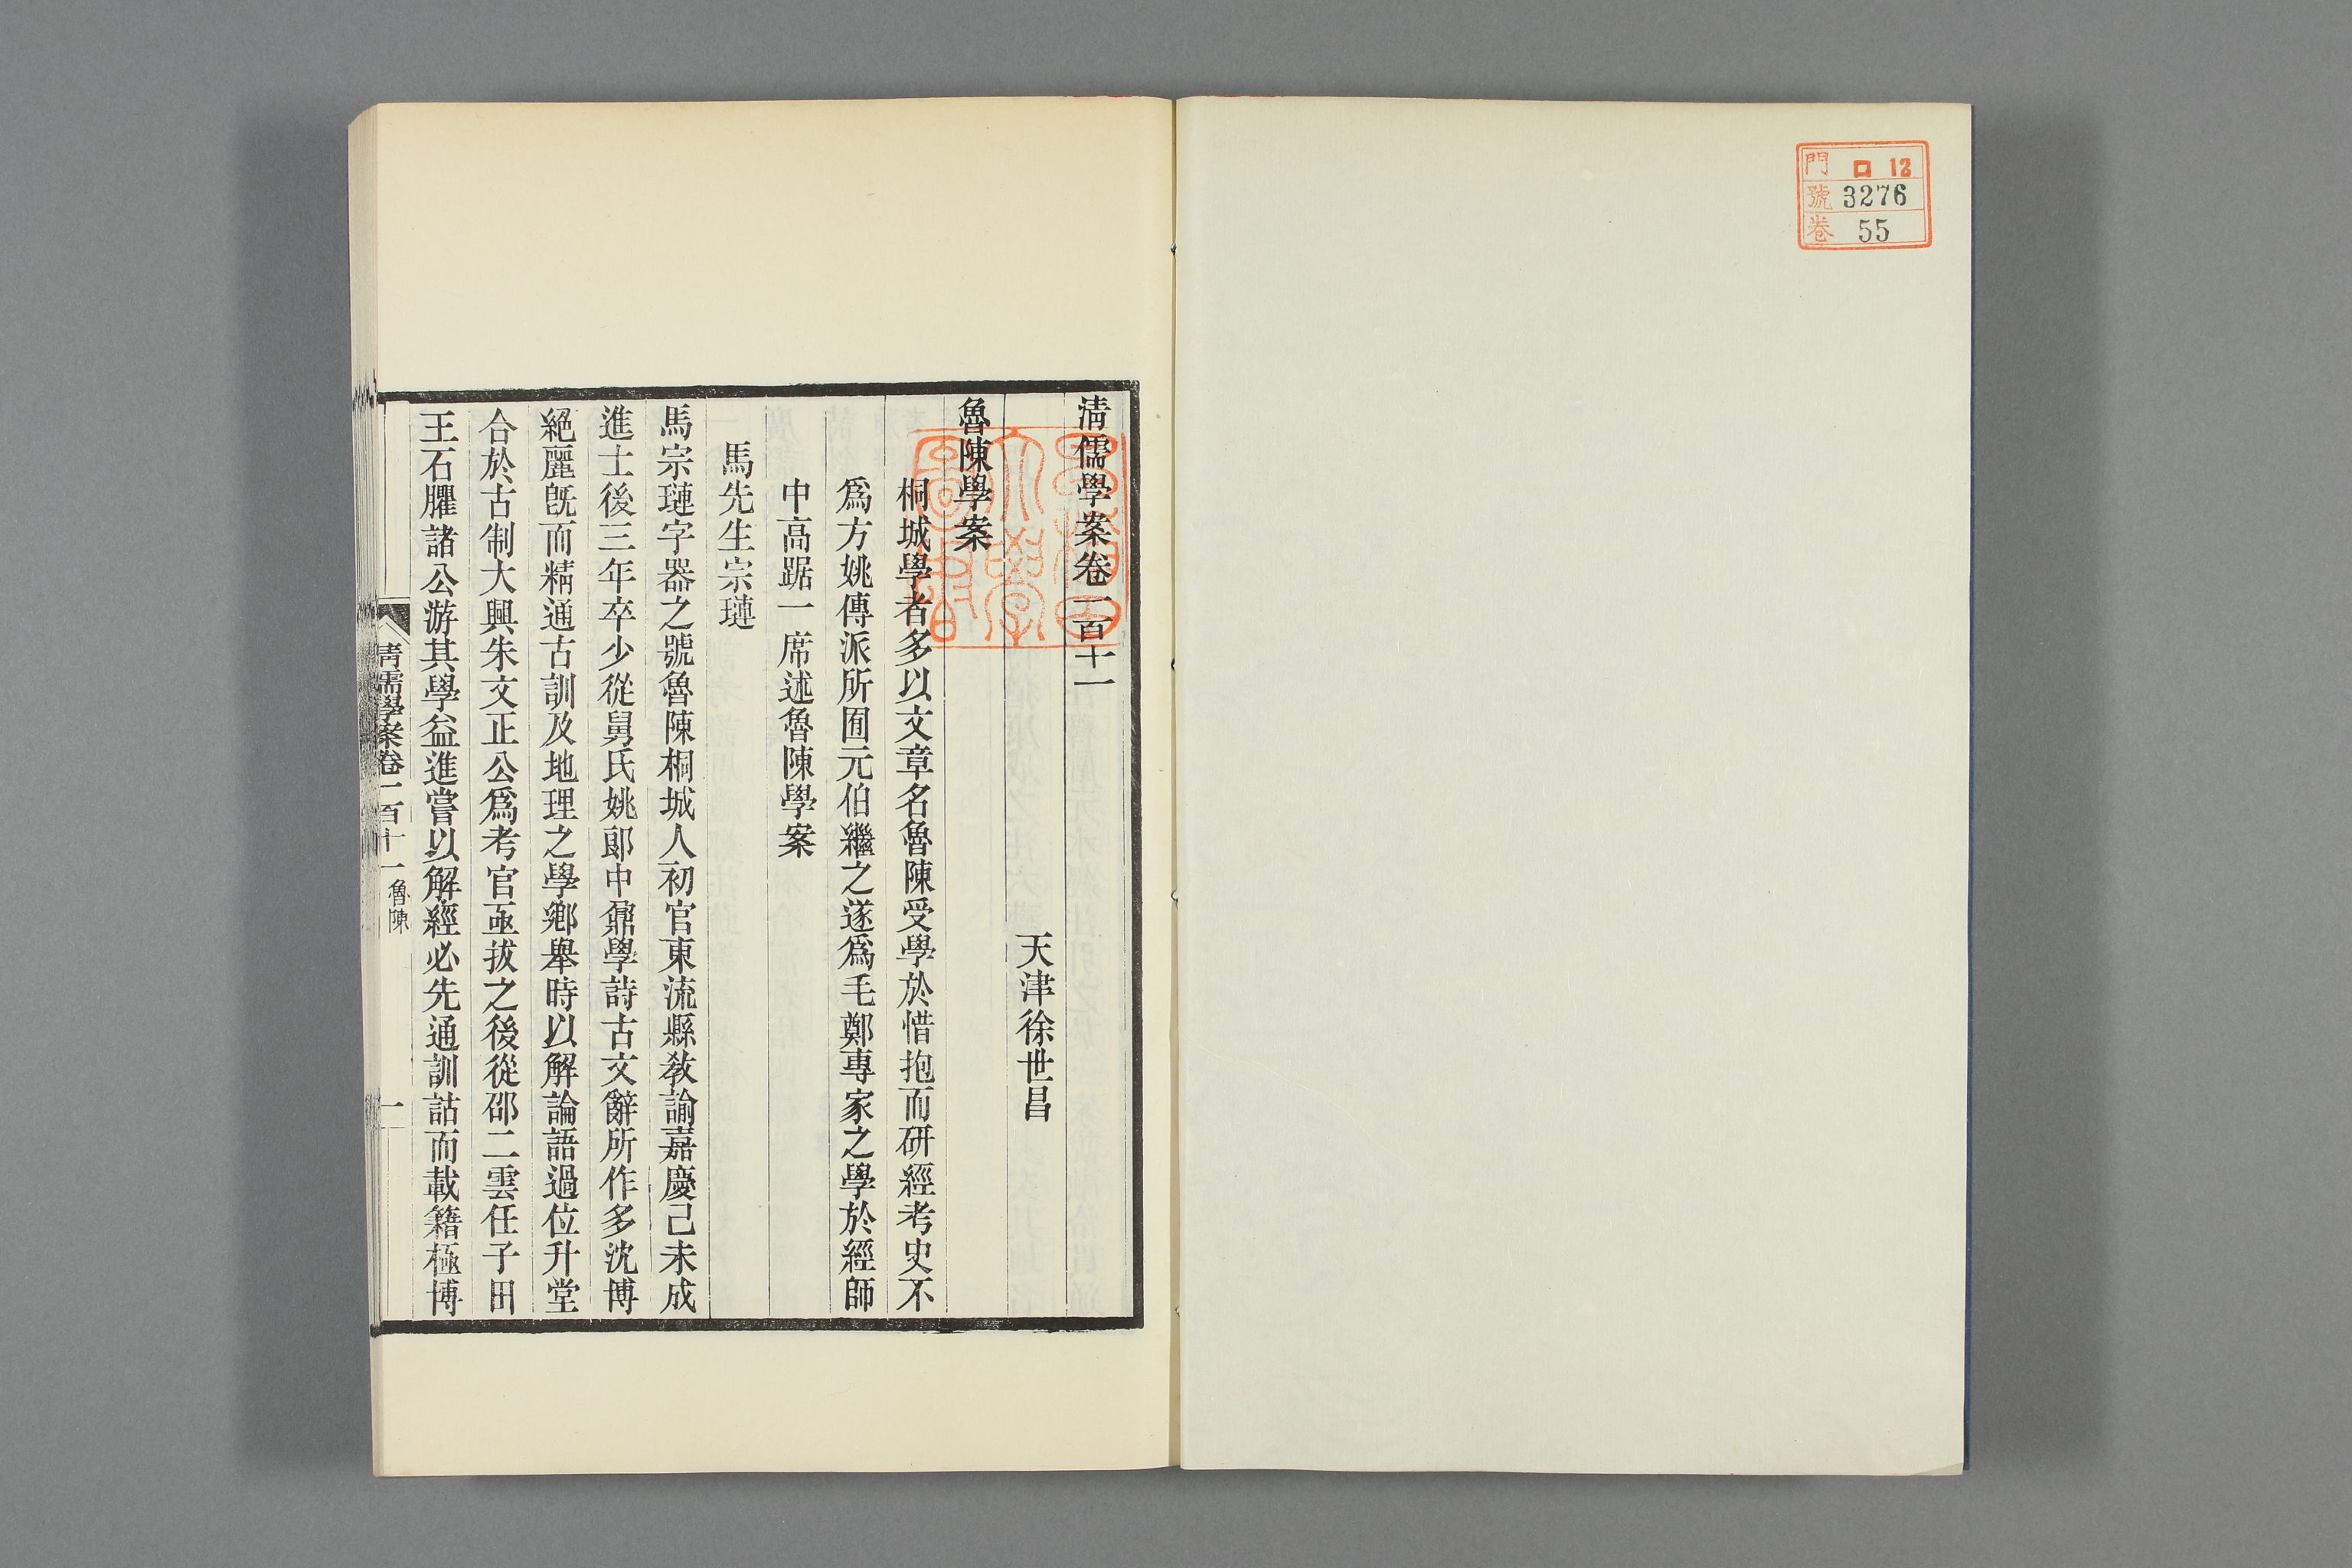 門 ロ 12
號 3276
卷 55
清儒學案卷一百十一
天津徐世昌
魯陳學案
桐城學者多以文章名魯陳受學於惜抱而研經考史不
爲方姚傳派所囿元伯繼之遂爲毛鄭專家之學於經師
中高踞一席述魯陳學案
馬先生宗璉
馬宗璉字器之號魯陳桐城人初官東流縣教諭嘉慶己未成
進士後三年卒少從舅氏姚郎中鼐學詩古文辭所作多沈博
絕麗旣而精通古訓及地理之學鄉舉時以解論語過位升堂
合於古制大興朱文正公爲考官亟拔之後從邵二雲任子田
王石臞諸公游其學益進嘗以解經必先通訓詁而載籍極博
清儒學案卷一百十一 魯陳 一